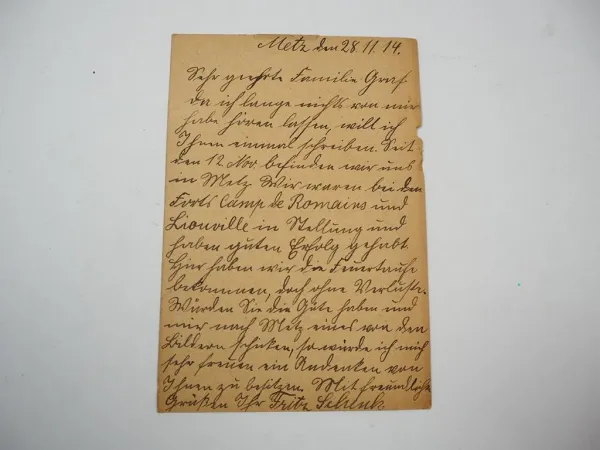 Metz den 28.11.14.
Sehr geehrte Familie Graf
da ich lange nichts von mir
habe hören lassen, will ich
Ihnen einmal schreiben. Seit
den 12. Nov. befinden wir uns
in Metz. Wir waren bei den
Forts Camp de Romains und
Lionville in Stellung und
haben guten Erfolg gehabt.
Hier haben wir die Feuertaufe
bekommen, doch ohne Verluste.
Würden Sie die Güte haben und
mir nach Metz eines von den
Bildern schicken, so würde ich mich
sehr freuen ein Andenken von
Ihnen zu besitzen. Mit freundlichen
Grüßen Ihr Fritz Schenk